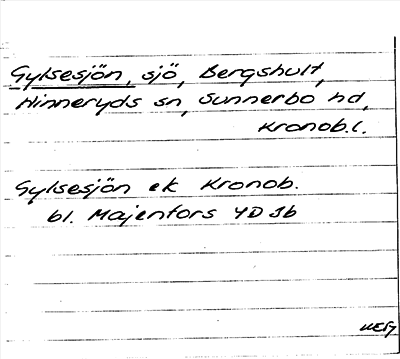 Gylsesjön, sjö, Bergshult,
Hinneryds sn, Sunnerbo hd,
Kronob.l.
Gylsesjön ek Kronob.
bl. Majenfors 4D Jb